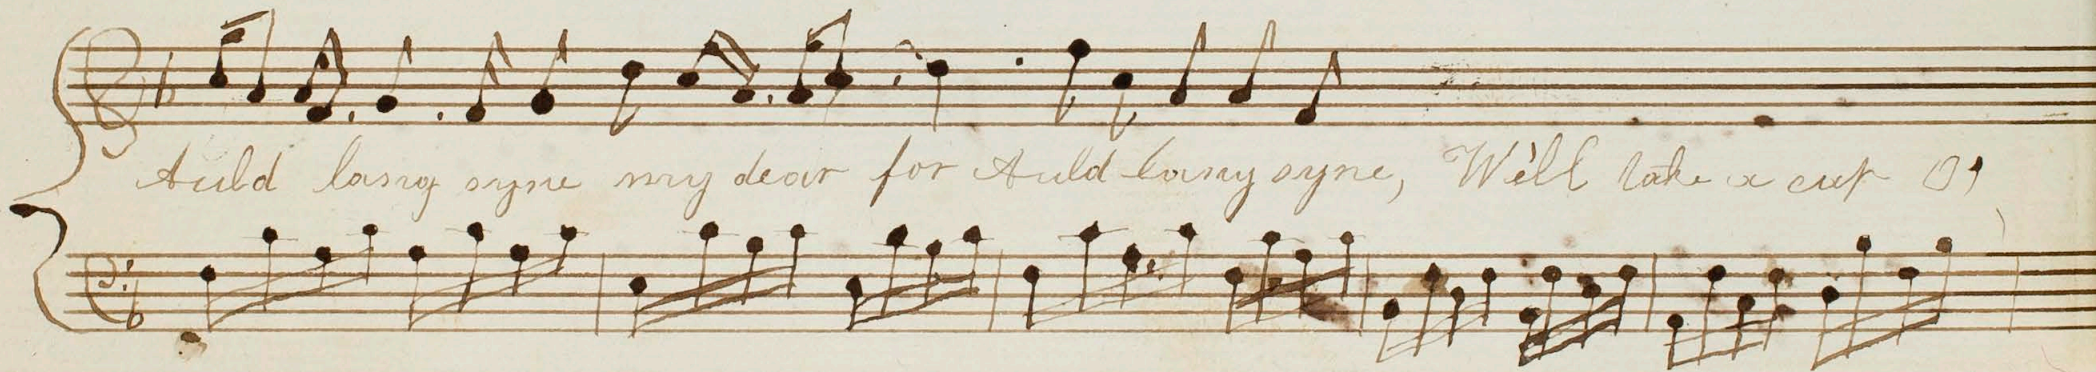 Auld lang syne my dear for Auld lang syne, We'll take a cup O,